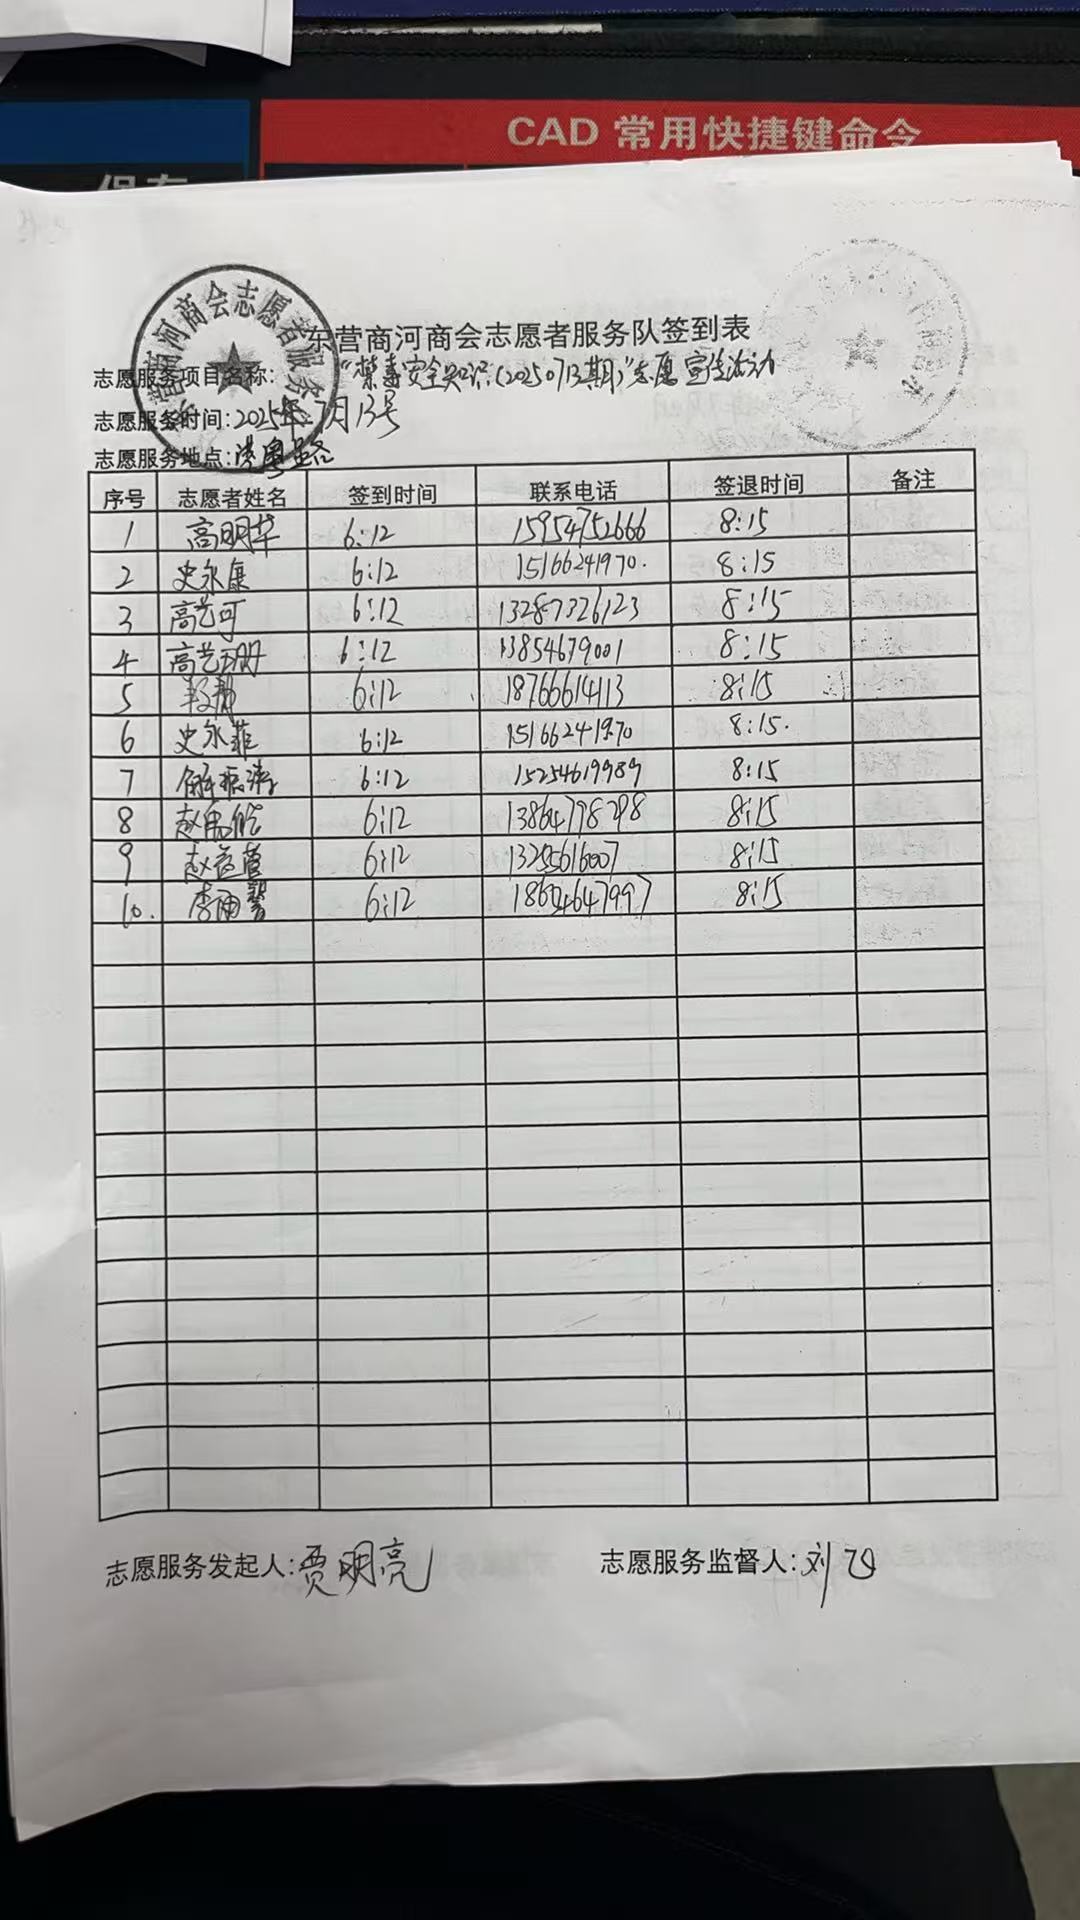 CAD 常用快捷键命令
保存
东营商河商会志愿者服务队签到表
志愿服务项目名称: "禁毒安全知识(20250713期)"志愿宣传活动
志愿服务时间:2025年7月13号
志愿服务地点:
序号 志愿者姓名 签到时间 联系电话 签退时间 备注
1 高明华 6:12 15954752666 8:15
2 史永康 6:12 15166241970. 8:15
3 高艺可 6:12 13287326123 8:15
4 高艺玥 6:12 13854679001 8:15
5 6:12 18766614113 8:15
6 史永菲 6:12 15166241970 8:15.
7 解振涛 6:12 15254619989 8:15
8 6:12 13864798298 8:15
9 6:12 13255616007 8:15
10. 李雨馨 6:12 8:15
志愿服务发起人:贾明亮 志愿服务监督人:刘飞